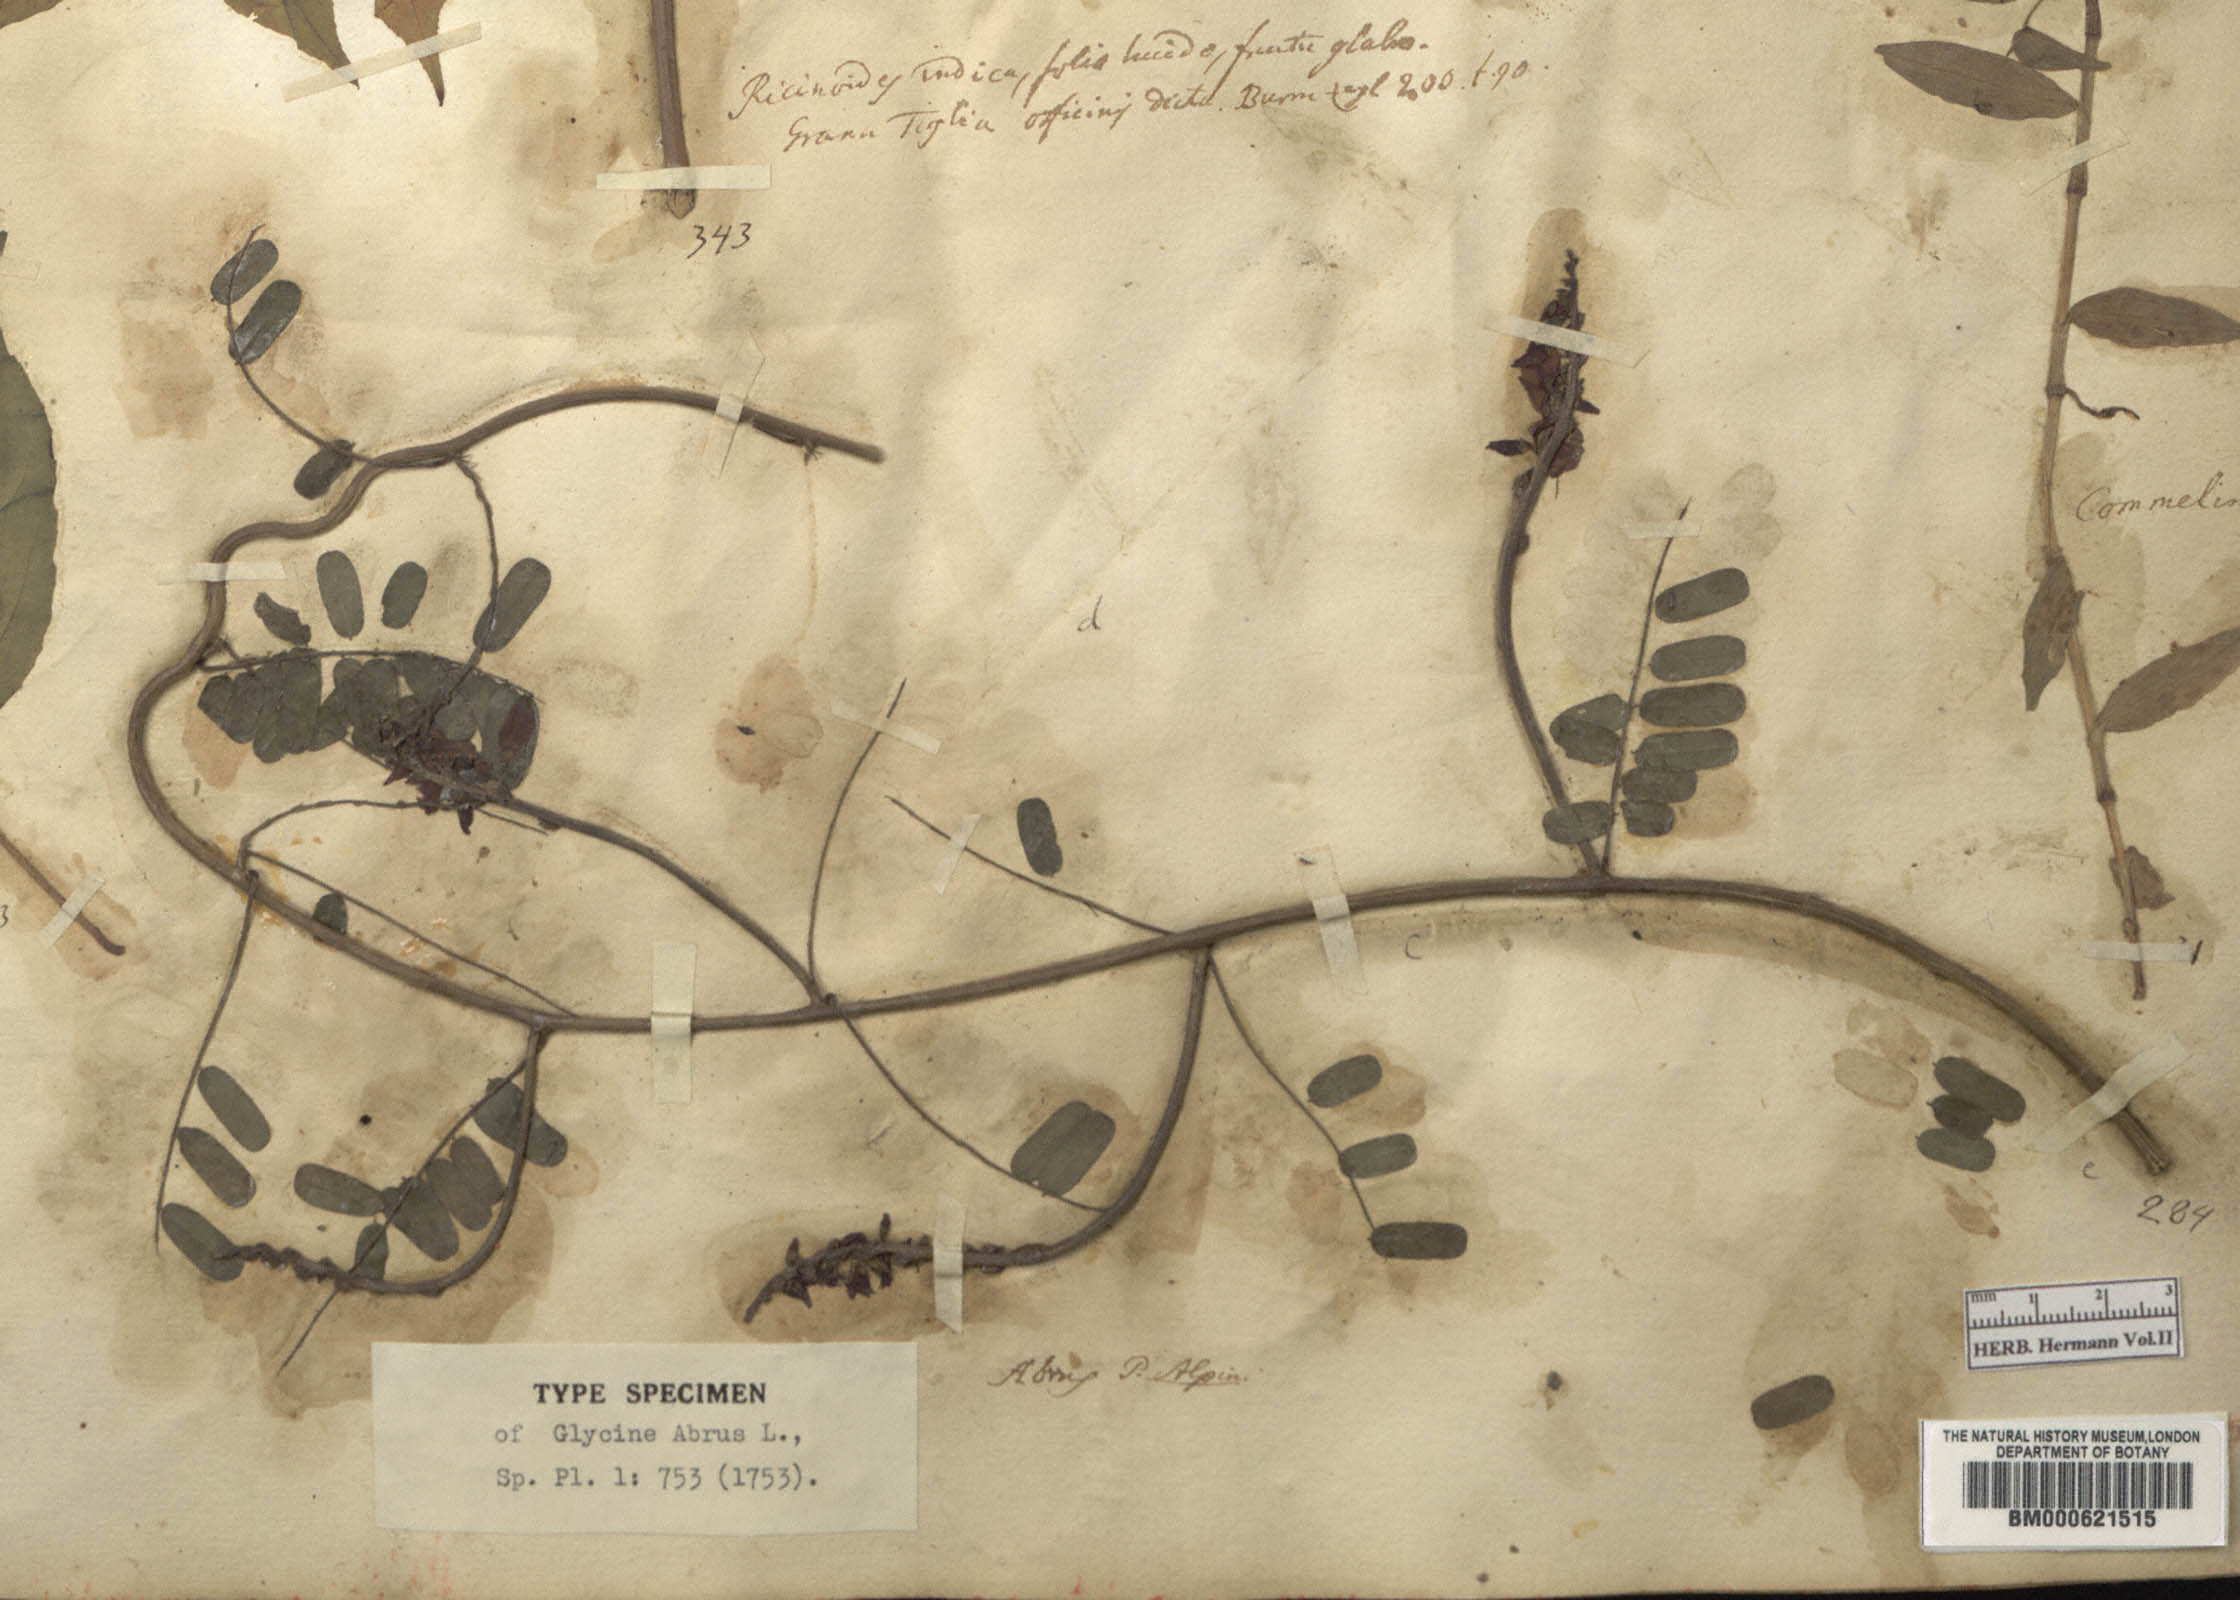 Ricinoides indica, folio lucido, fructu glabro.
Grana Tiglia officinis dicta. Burm zeyl 200. t. 90.
343
Commelin
d
3
c
1
e
284
Abrus P. Alpin.
mm 1 2 3
HERB. Hermann Vol.II
TYPE SPECIMEN
of Glycine Abrus L.,
Sp. Pl. 1: 753 (1753).
THE NATURAL HISTORY MUSEUM,LONDON
DEPARTMENT OF BOTANY
BM000621515